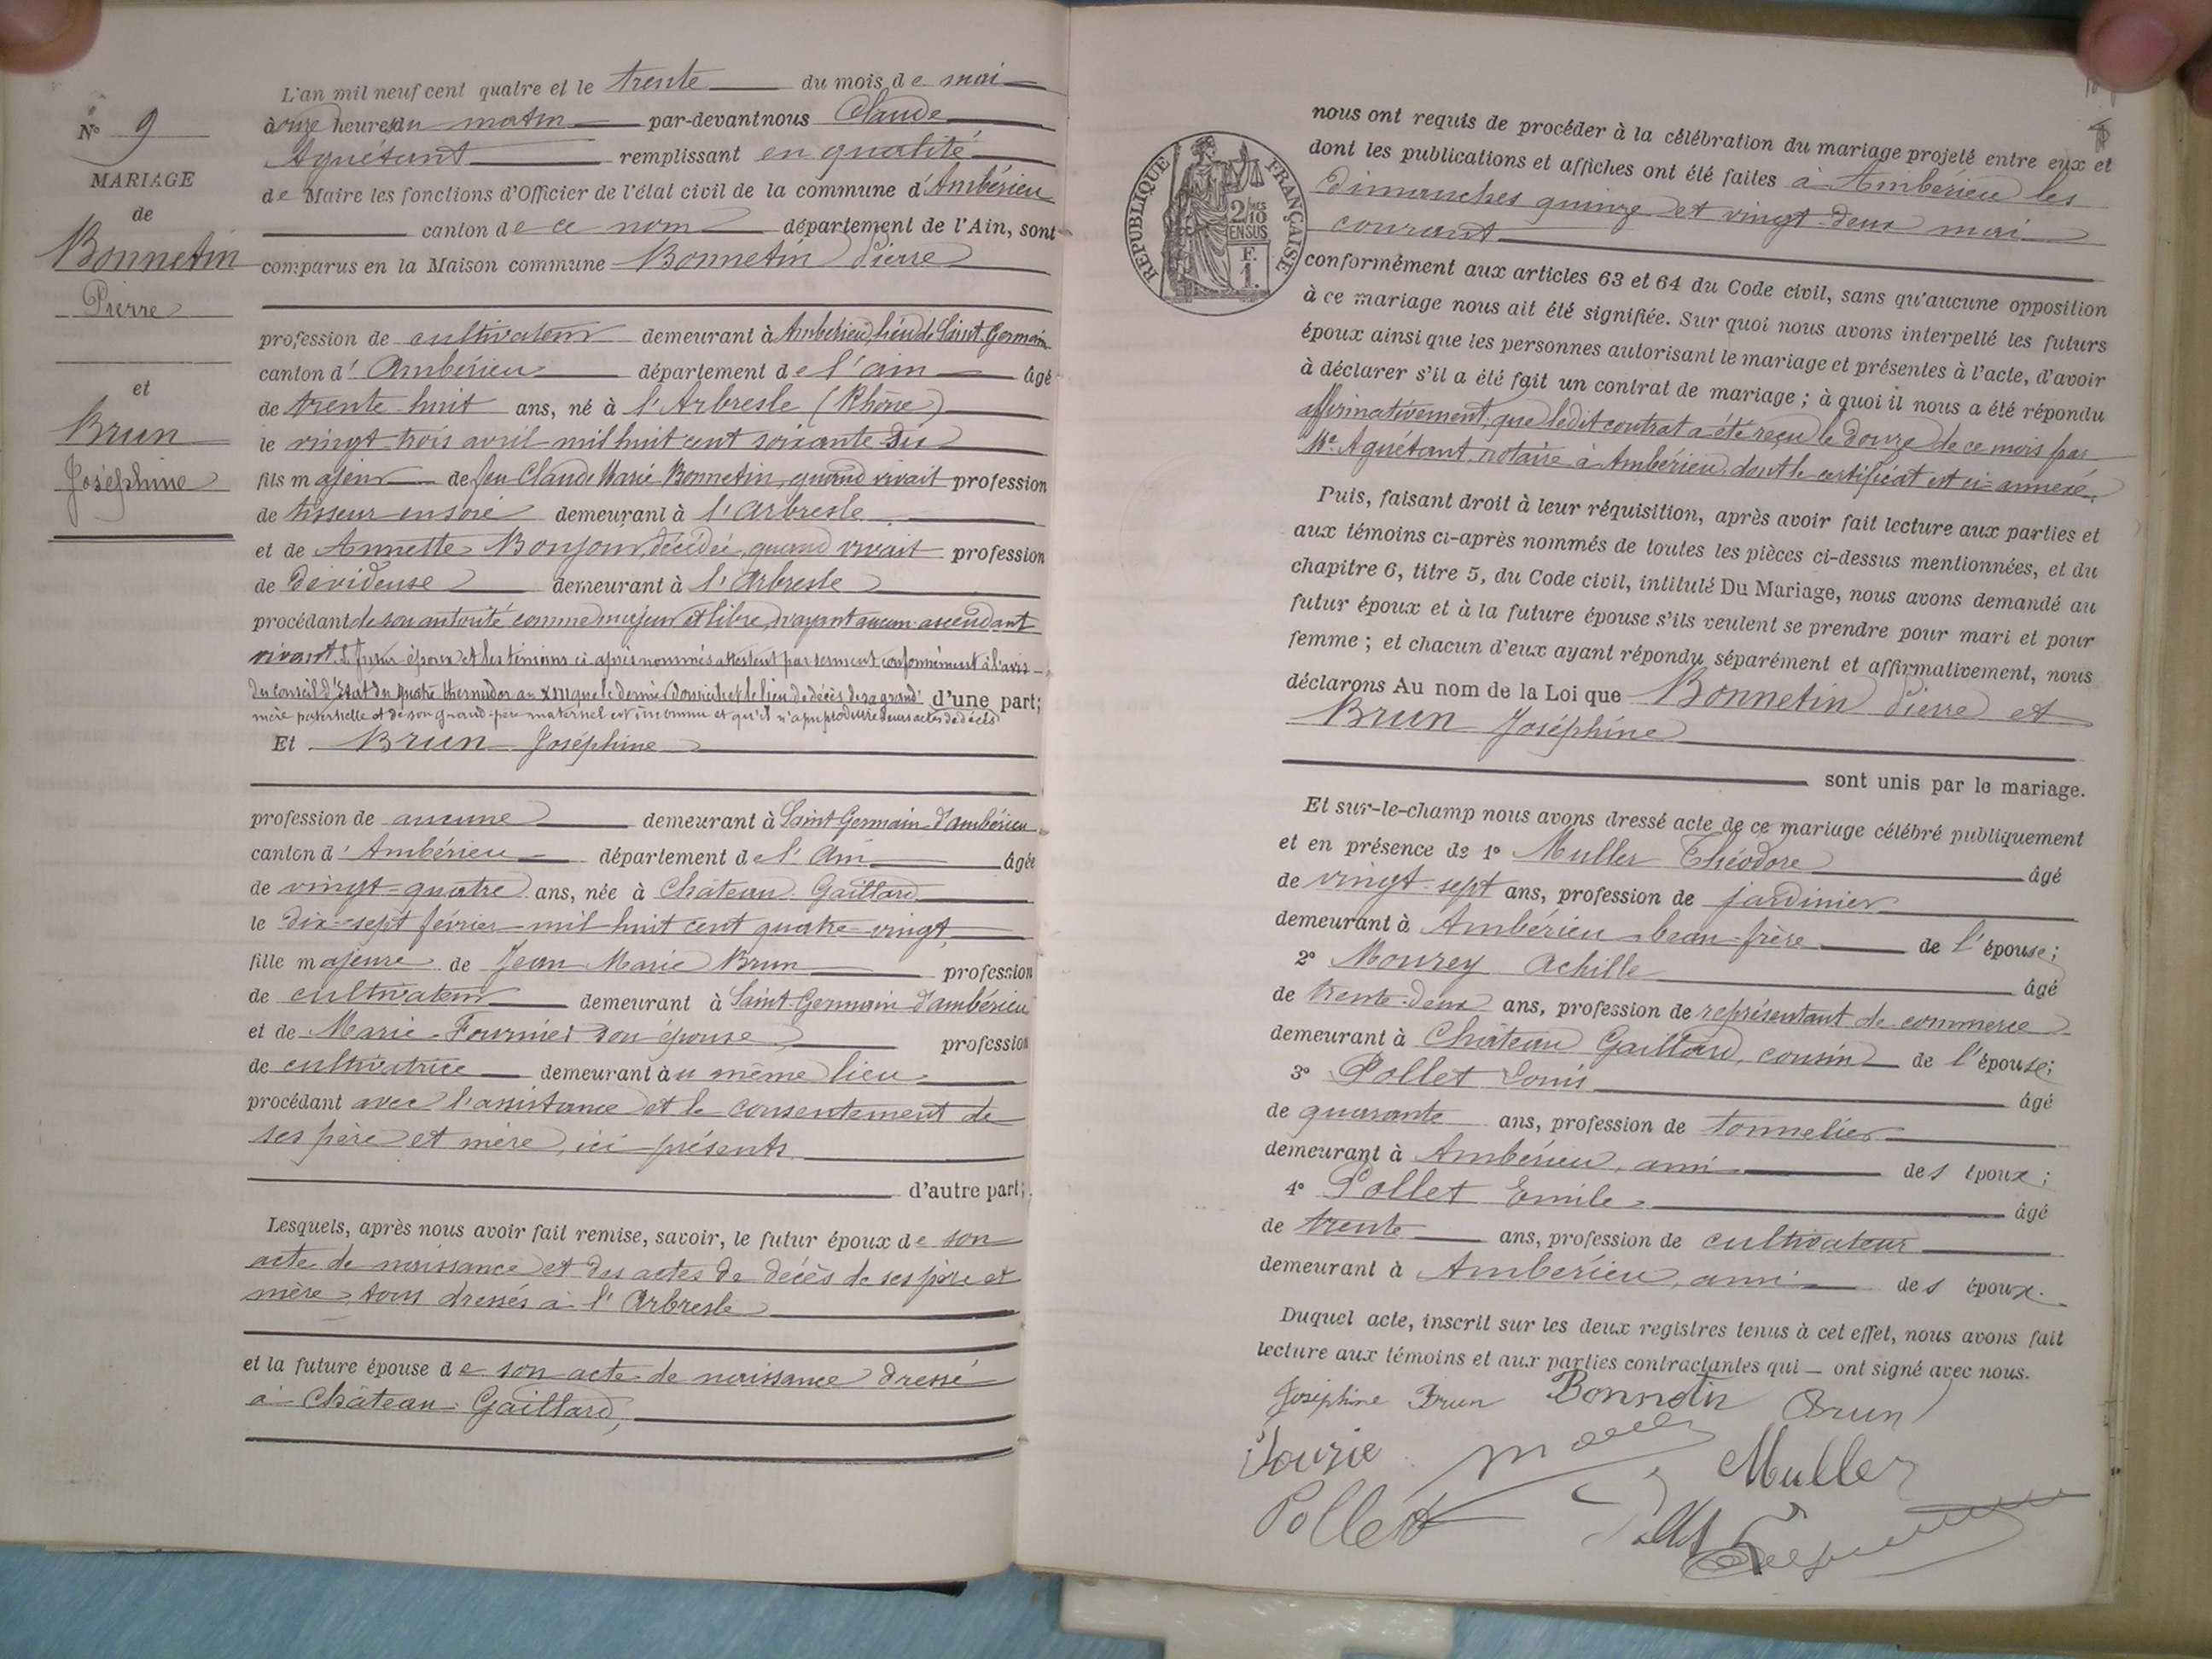 N° 9
MARIAGE
de
Bonnetin
Pierre
et
Brun
Joséphine
L'an mil neuf cent quatre et le trente du mois de mai
à onze heures du matin par-devant nous Claude
Aguétant remplissant en qualité
de Maire les fonctions d'Officier de l'état civil de la commune d'Ambérieu
canton de ce nom département de l'Ain, sont
comparus en la Maison commune Bonnetin Pierre
profession de cultivateur demeurant à Ambérieu, lieu de Saint Germain
canton d'Ambérieu département de l'Ain âgé
de trente-huit ans, né à l'Arbresle (Rhône)
le vingt trois avril mil huit cent soixante six
fils majeur de feu Claude Marie Bonnetin, quand vivait profession
de tisseur en soie demeurant à l'Arbresle
et de Annette Bonjour, décédée, quand vivait profession
de dévideuse demeurant à l'Arbresle
procédant de son autorité comme majeur et libre, n'ayant aucun ascendant
vivant. Le futur époux et les témoins ci-après nommés attestent par serment conformément à l'avis
du Conseil d'Etat du quatre thermidor an XIII que le dernier domicile et le lieu de décès de sa grand' d'une part;
mère paternelle et de son grand-père maternel est inconnu et qu'il n'a pu produire leurs actes de décès
Et Brun Joséphine
profession de aucune demeurant à Saint Germain d'Ambérieu
canton d'Ambérieu département de l'Ain âgée
de vingt-quatre ans, née à Château Gaillard
le dix-sept février mil huit cent quatre-vingt
fille majeure de Jean Marie Brun profession
de cultivateur demeurant à Saint-Germain d'Ambérieu
et de Marie Fournier son épouse profession
de cultivatrice demeurant au même lieu
procédant avec l'assistance et le consentement de
ses père et mère, ici présents
d'autre part;
Lesquels, après nous avoir fait remise, savoir, le futur époux de son
acte de naissance et des actes de décès de ses père et
mère, tous dressés à l'Arbresle
et la future épouse de son acte de naissance dressé
à Château-Gaillard,
REPUBLIQUE FRANÇAISE
2/10 EN SUS
F. 1.
nous ont requis de procéder à la célébration du mariage projeté entre eux et
dont les publications et affiches ont été faites à Ambérieu les
dimanches quinze et vingt-deux mai
courant
conformément aux articles 63 et 64 du Code civil, sans qu'aucune opposition
à ce mariage nous ait été signifiée. Sur quoi nous avons interpellé les futurs
époux ainsi que les personnes autorisant le mariage et présentes à l'acte, d'avoir
à déclarer s'il a été fait un contrat de mariage ; à quoi il nous a été répondu
affirmativement, que ledit contrat a été reçu le douze de ce mois par
Me Aguétant notaire à Ambérieu, dont le certificat est ci-annexé.
Puis, faisant droit à leur réquisition, après avoir fait lecture aux parties et
aux témoins ci-après nommés de toutes les pièces ci-dessus mentionnées, et du
chapitre 6, titre 5, du Code civil, intitulé Du Mariage, nous avons demandé au
futur époux et à la future épouse s'ils veulent se prendre pour mari et pour
femme ; et chacun d'eux ayant répondu séparément et affirmativement, nous
déclarons Au nom de la Loi que Bonnetin Pierre et
Brun Joséphine
sont unis par le mariage.
Et sur-le-champ nous avons dressé acte de ce mariage célébré publiquement
et en présence de 1° Muller Théodore âgé
de vingt-sept ans, profession de jardinier
demeurant à Ambérieu beau-frère de l'épouse;
2° Mourey Achille âgé
de trente-deux ans, profession de représentant de commerce
demeurant à Château Gaillard, cousin de l'épouse;
3° Pollet Louis âgé
de quarante ans, profession de tonnelier
demeurant à Ambérieu, ami des époux;
4° Pollet Emile âgé
de trente ans, profession de cultivateur
demeurant à Ambérieu, ami des époux.
Duquel acte, inscrit sur les deux registres tenus à cet effet, nous avons fait
lecture aux témoins et aux parties contractantes qui ont signé avec nous.
Joséphine Brun Bonnetin Brun
Muller
Pollet